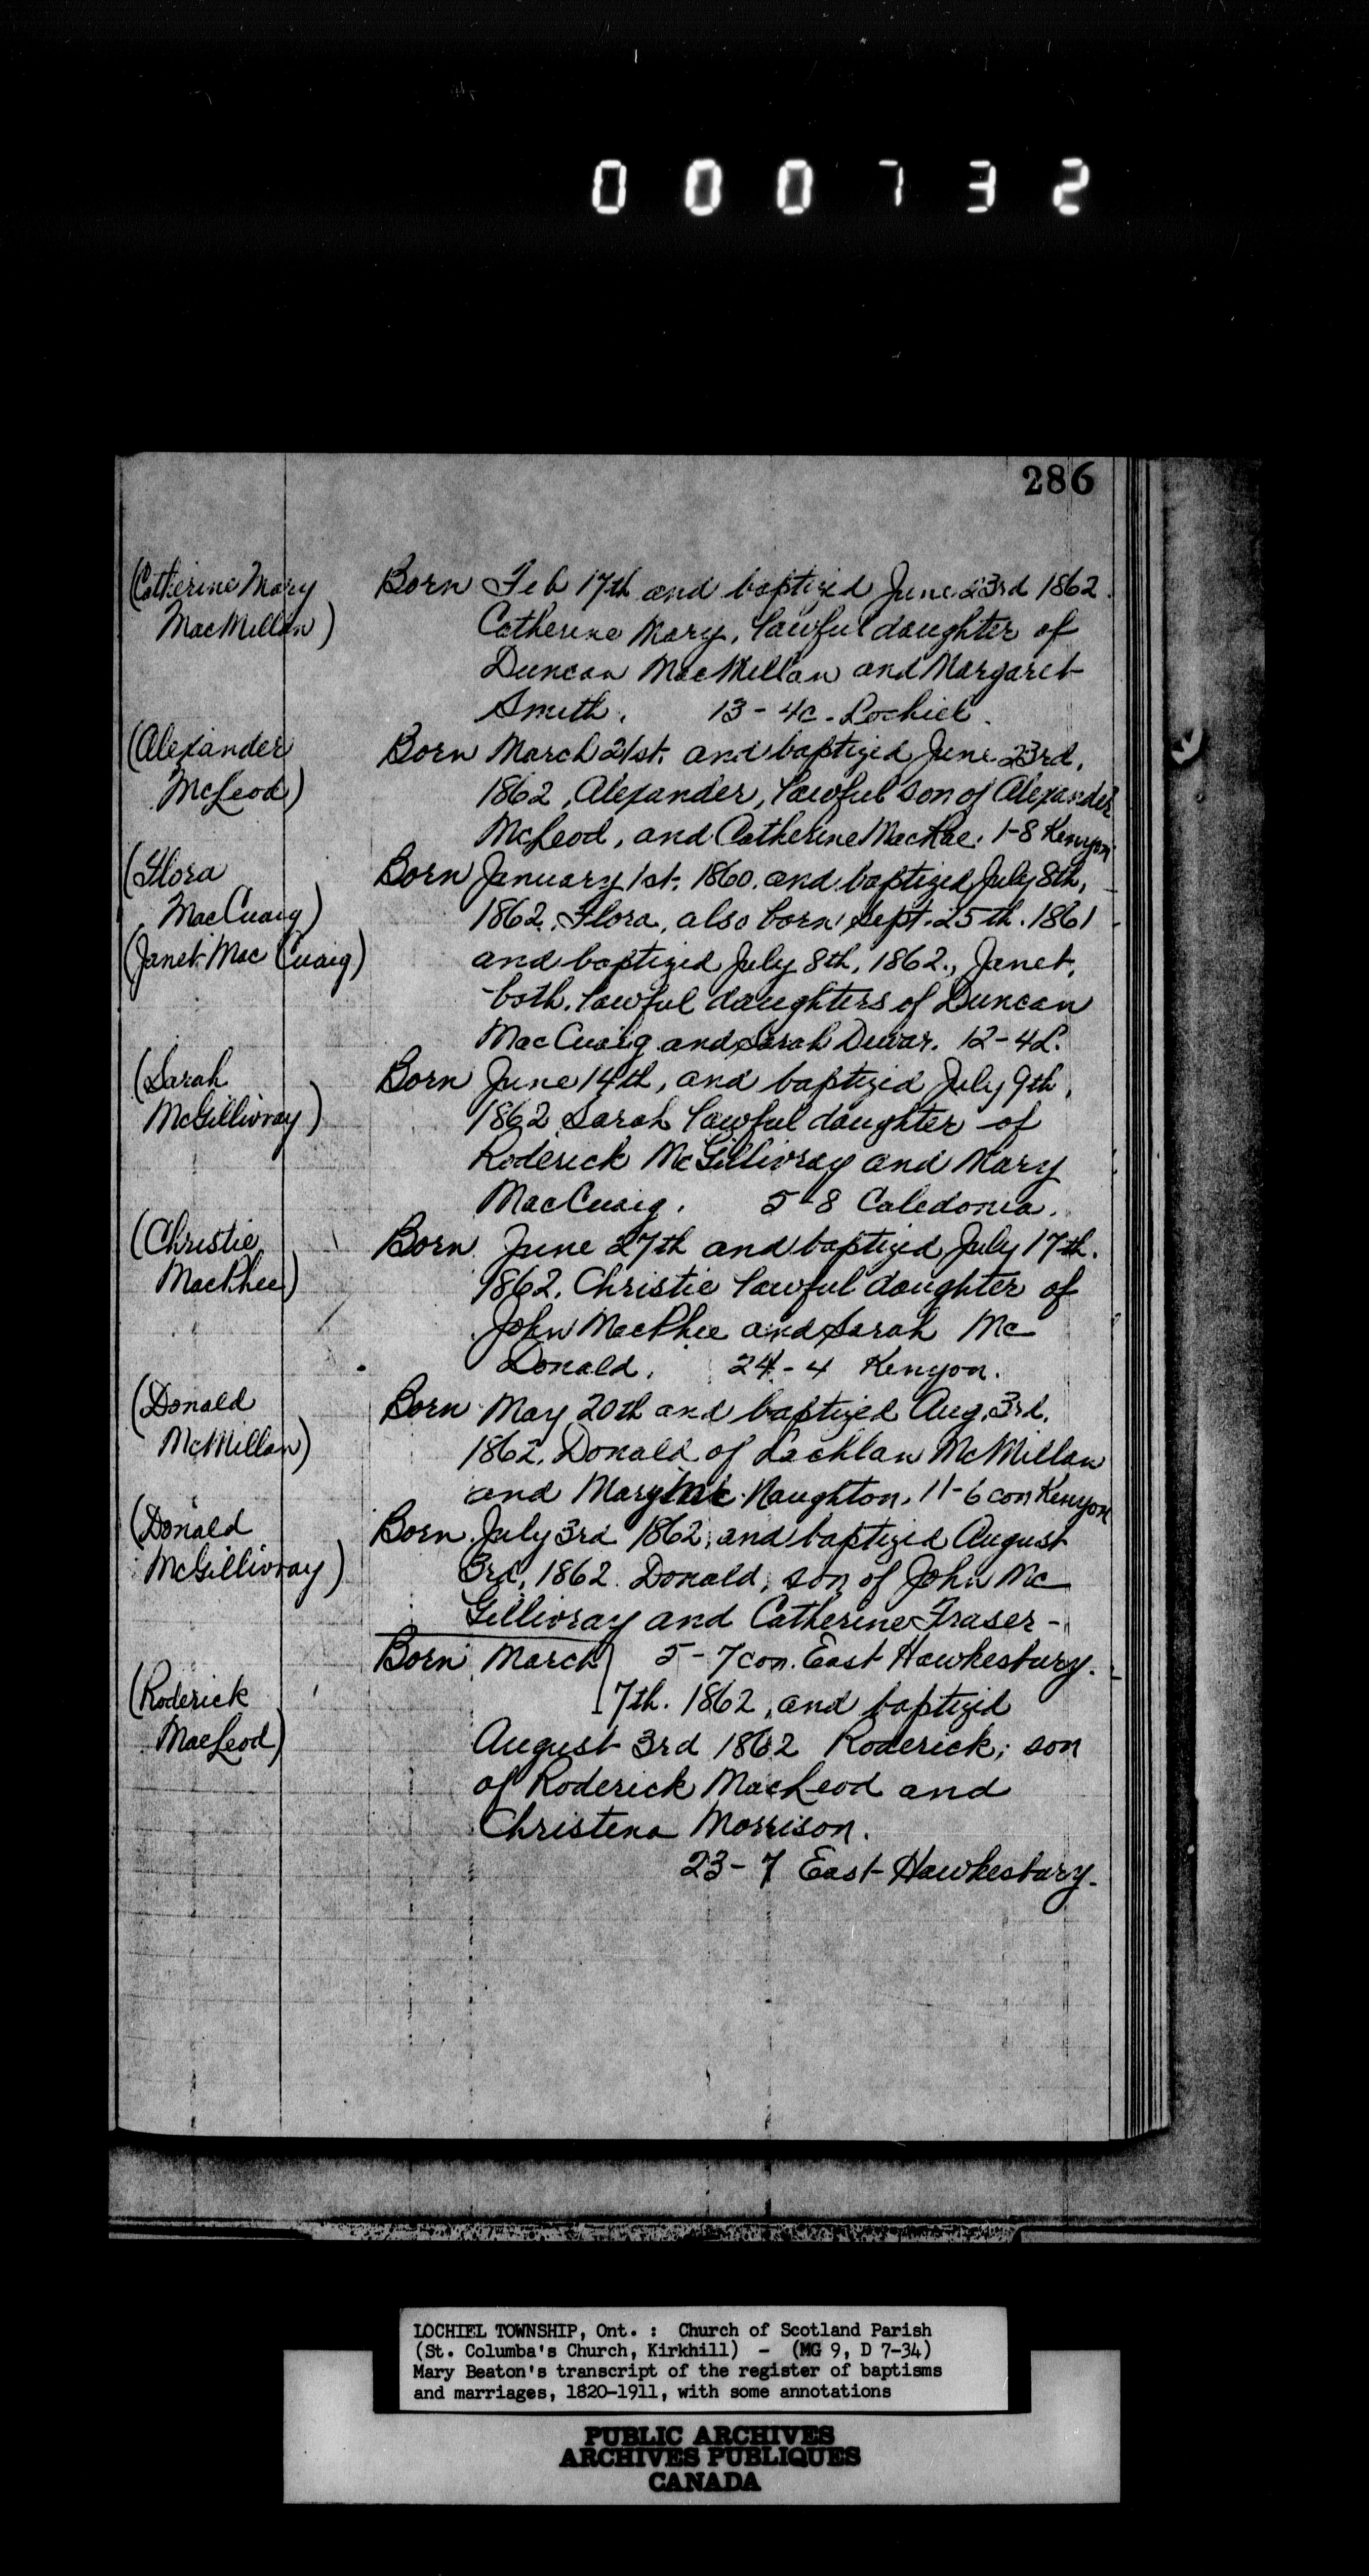 000732
286
(Catherine Mary
MacMillan)
Born Feb 17th and baptized June 23rd 1862.
Catherine Mary, lawful daughter of
Duncan MacMillan and Margaret
Smith. 13-4c. Lochiel.
(Alexander
McLeod)
Born March 21st. and baptized June 23rd,
1862, Alexander, lawful son of Alexander
McLeod, and Catherine MacRae. 1-8 Kenyon.
(Flora
MacCuaig)
(Janet MacCuaig)
Born January 1st. 1860. and baptized July 8th,
1862. Flora, also born Sept. 25th. 1861
and baptized July 8th, 1862., Janet,
both lawful daughters of Duncan
MacCuaig and Sarah Dewar. 12-4L.
(Sarah
McGillivray)
Born June 14th, and baptized July 9th,
1862 Sarah lawful daughter of
Roderick McGillivray and Mary
MacCuaig. 5-8 Caledonia.
(Christie
MacPhee)
Born June 27th and baptized July 17th.
1862. Christie lawful daughter of
John MacPhee and Sarah Mc
Donald. 24-4 Kenyon.
(Donald
McMillan)
Born May 20th and baptized Aug. 3rd.
1862. Donald of Lachlan McMillan
and Mary McNaughton. 11-6 con Kenyon
(Donald
McGillivray)
Born July 3rd 1862, and baptized August
3rd, 1862. Donald, son of John Mc
Gillivray and Catherine Fraser-
5-7 con. East Hawkesbury.
(Roderick
MacLeod)
Born March
7th. 1862, and baptized
August 3rd 1862 Roderick, son
of Roderick MacLeod and
Christena Morrison.
23-7 East Hawkesbury.
LOCHIEL TOWNSHIP, Ont. : Church of Scotland Parish
(St. Columba's Church, Kirkhill) - (MG 9, D 7-34)
Mary Beaton's transcript of the register of baptisms
and marriages, 1820-1911, with some annotations
PUBLIC ARCHIVES
ARCHIVES PUBLIQUES
CANADA